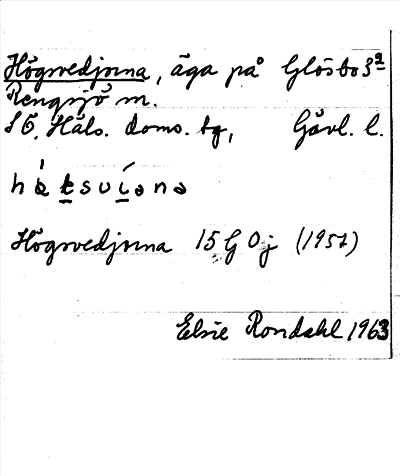 Högsvedjorna, äga på Glösbo 3ª
Rengsjö sn.
S Ö. Häls. doms. tg, Gävl. l.
Högsvedjorna 15 G 0j (1957)
Elsie Rondahl 1963